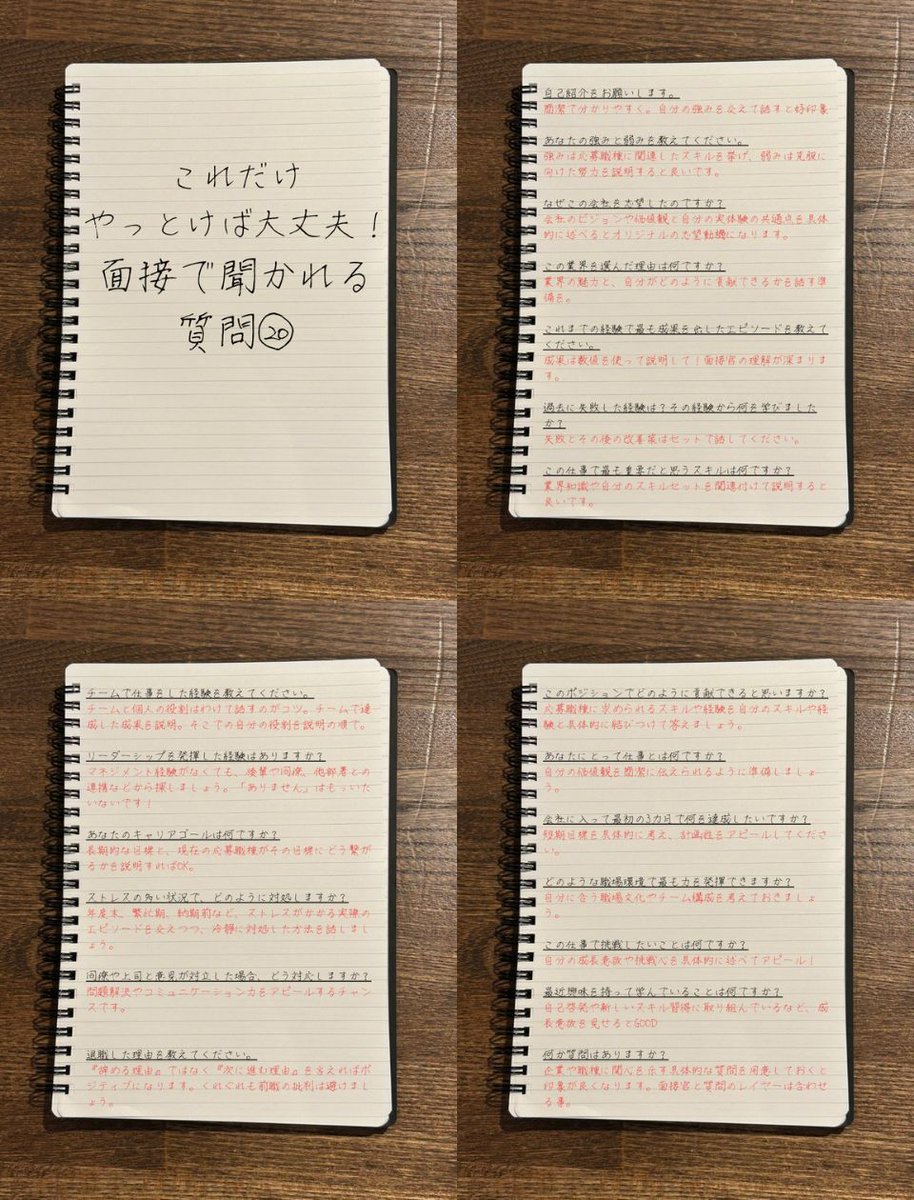 これだけ
やっとけば大丈夫！
面接で聞かれる
質問⑳
自己紹介をお願いします。
簡潔で分かりやすく。自分の強みを交えて話すと好印象
あなたの強みと弱みを教えてください。
強みは応募職種に関連したスキルを挙げ、弱みは克服に
向けた努力を説明すると良いです。
なぜこの会社を志望したのですか？
会社のビジョンや価値観と自分の実体験の共通点を具体
的に述べるとオリジナルの志望動機になります。
この業界を選んだ理由は何ですか？
業界の魅力と、自分がどのように貢献できるかを話す準
備を。
これまでの経験で最も成果を出したエピソードを教えて
ください。
成果は数値を使って説明して！面接官の理解が深まりま
す。
過去に失敗した経験は？その経験から何を学びました
か？
失敗とその後の改善策はセットで話してください。
この仕事で最も重要だと思うスキルは何ですか？
業界知識や自分のスキルセットを関連付けて説明すると
良いです。
チームで仕事をした経験を教えてください。
チームと個人の役割はわけて話すのがコツ。チームで達
成した成果を説明。そこでの自分の役割を説明の順で。
リーダーシップを発揮した経験はありますか？
マネジメント経験がなくても、後輩や同僚、他部署との
連携などから探しましょう。「ありません」はもったい
ないです！
あなたのキャリアゴールは何ですか？
長期的な目標と、現在の応募職種がその目標にどう繋が
るかを説明すればOK。
ストレスの多い状況で、どのように対処しますか？
年度末、繁忙期、納期前など、ストレスがかかる実際の
エピソードを交えつつ、冷静に対処した方法を話しまし
ょう。
同僚や上司と意見が対立した場合、どう対応しますか？
問題解決やコミュニケーション力をアピールするチャン
スです。
退職した理由を教えてください。
『辞める理由』ではなく『次に進む理由』を言えればポ
ジティブになります。くれぐれも前職の批判は避けまし
ょう。
このポジションでどのように貢献できると思いますか？
応募職種に求められるスキルや経験を自分のスキルや経
験と具体的に結びつけて答えましょう。
あなたにとって仕事とは何ですか？
自分の価値観を簡潔に伝えられるように準備しましょ
う。
会社に入って最初の3カ月で何を達成したいですか？
短期目標を具体的に考え、計画性をアピールしてくださ
い。
どのような職場環境で最も力を発揮できますか？
自分に合う職場文化やチーム構成を考えておきましょ
う。
この仕事で挑戦したいことは何ですか？
自分の成長意欲や挑戦心を具体的に述べてアピール！
最近興味を持って学んでいることは何ですか？
自己啓発や新しいスキル習得に取り組んでいるなど、成
長意欲を見せるとGOOD
何か質問はありますか？
企業や職種に関心を示す具体的な質問を用意しておくと
印象が良くなります。面接官と質問のレイヤーは合わせ
る事。